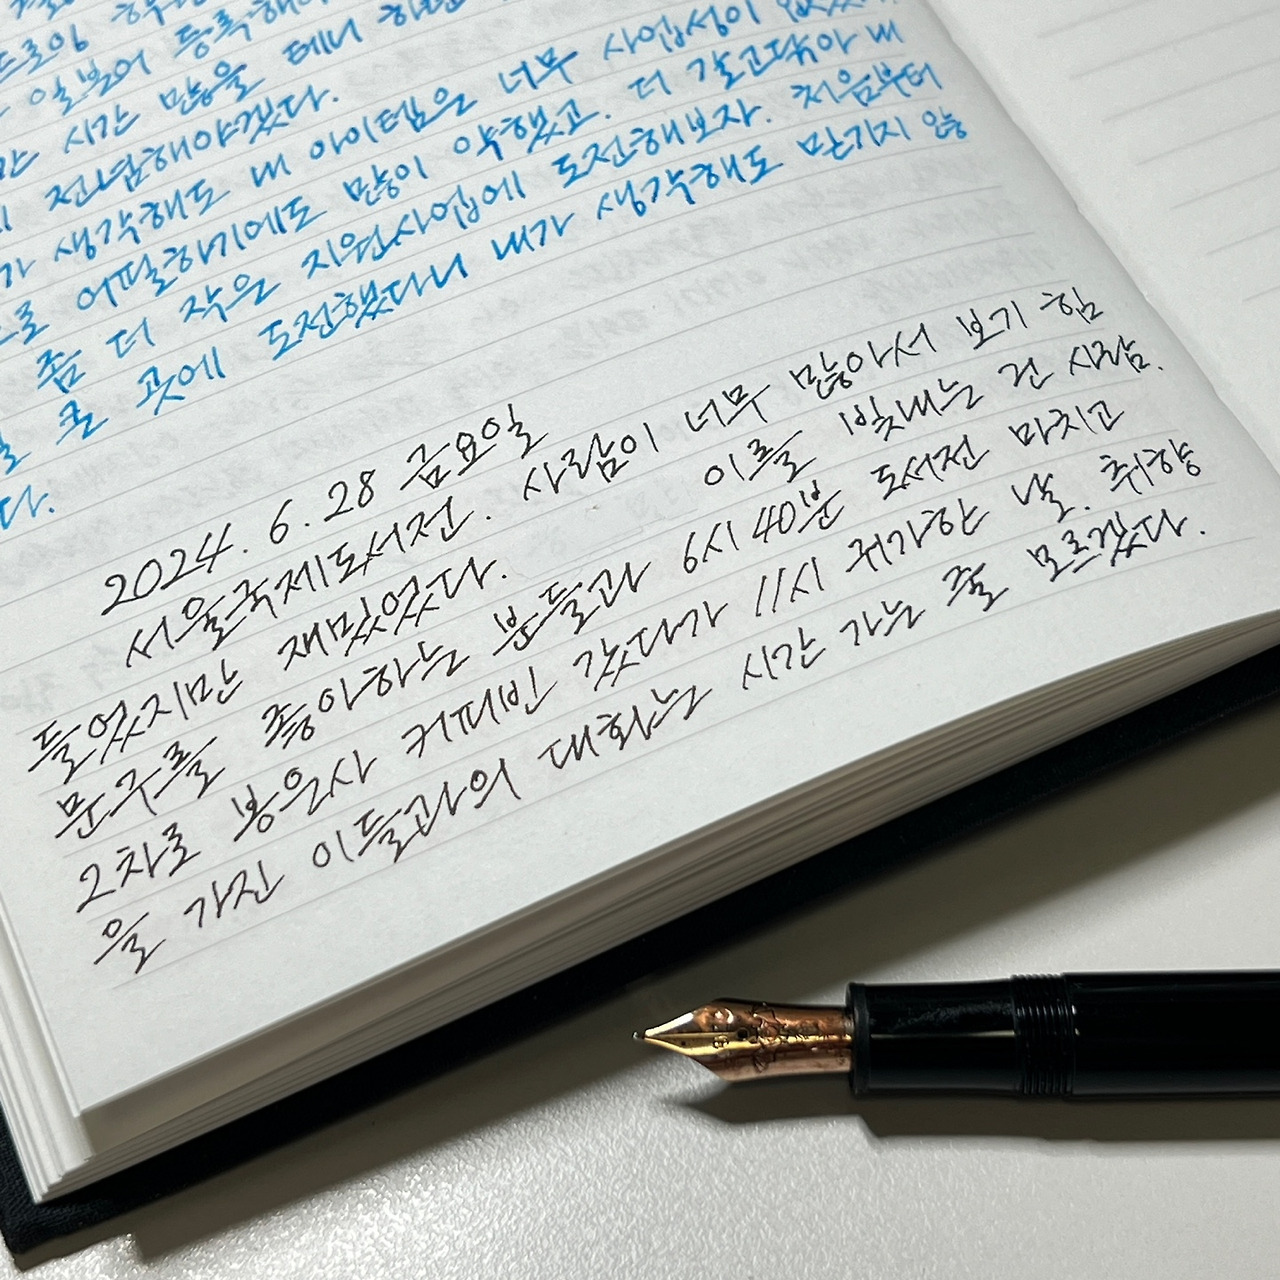 드로잉
일본어 등록해야
시간 많을 테니
전념해야겠다.
생각해도 내 아이템은 너무 사업성이
어필하기에도 많이 약했고. 더 갈고닦아 내
좀 더 작은 지원사업에 도전해보자. 처음부터
큰 곳에 도전했다니 내가 생각해도 믿기지 않
다.
2024. 6. 28 금요일
서울국제도서전. 사람이 너무 많아서 보기 힘
들었지만 재밌었다. 이를 빛내는 건 사람.
문구를 좋아하는 분들과 6시 40분 도서전 마치고
2차로 봉은사 커피빈 갔다가 11시 귀가한 날. 취향
을 가진 이들과의 대화는 시간 가는 줄 모르겠다.